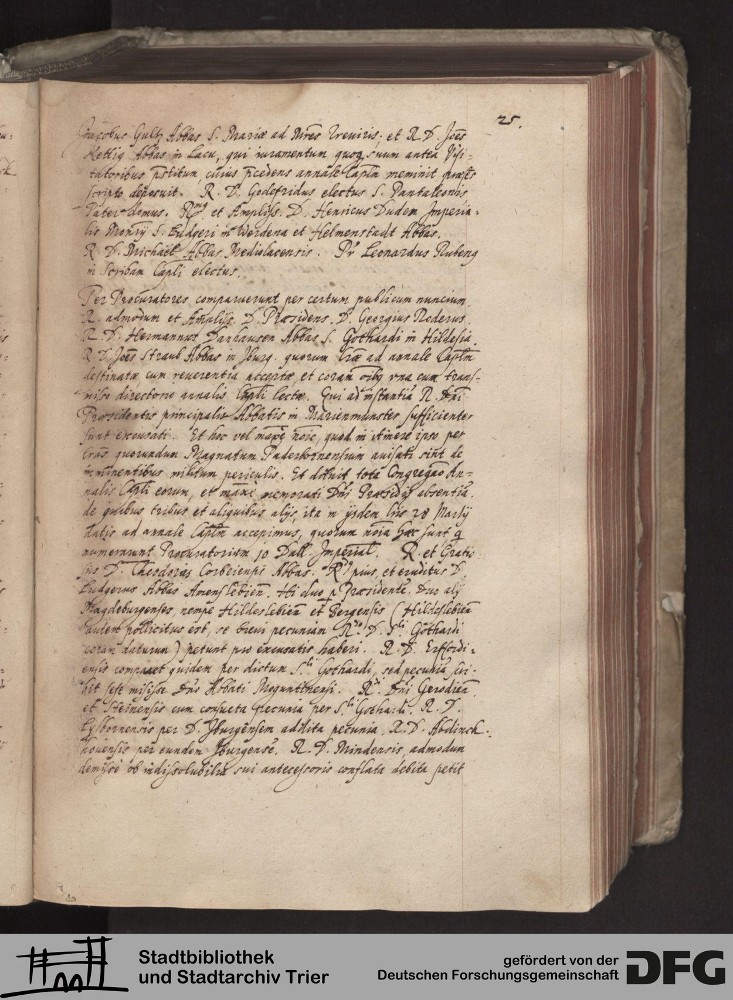 25.
Jacobus Gultz Abbas S. Mariæ ad Mres Treuiris. et R. D. Joes
Kettig Abbas in Lacu, qui iuramentum quoq, suum antea Visi-
tatoribus pstitum cuius pcedens annale Caplm meminit
scripto deposuit. R. D. Godefridus electus S. Pantaleonis
Pater domus. Rmq et Ampliss. D. Henricus Dudem Imperia-
lis Monrij S. Ludgeri in Werdena et Helmenstadt Abbas.
R. D. Michaël Abbas Mediolacensis. Pr Leonardus Rubeng
in Scribam Capli electus.
Per Procuratores comparuerunt per certum publicum nuncium
R. admodum et Ampliss. D. Præsidens. D. Georgius Roderus.
R. D. Hermannus Dathausen Abbas S. Gothardi in Hildesia.
R. D. Joes Straub Abbas in Jburg. quorum lræ ad annale Caplm
destinatæ cum reuerentia acceptæ et coram oibq vna cum trans-
misso directorio annalis Capli lectæ. Qui ad instantia R. Dni
Præsidentis principalis Abbatis in Marienmunster sufficienter
sunt excusati. Et hoc vel maxe noie, quod in itinere ipso per
lras quorundam Magnatum Paderbornensium auisati sint de
imminentibus militum periculis. Et doluit tota Congregao An-
nalis Capli eorum, et maxe memorati Dni Præsidis absentia.
de quibus tribus et aliquibus alijs, ita in ijsdem lris 28 Martij
datis ad annale Caplm accepimus, quorum noia hæc sunt q
numerarunt Procuratorium 10 Dall. Imperial. R. et Gratio
sus D. Theodorus Corbeiensis Abbas. Rq pius, et eruditus D.
Ludgerus Abbas Amenslebien. Hi duo p Præsidente. Duo alij
Magdeburgenses nempe Hildeslebien et Bergensis (Hildeslebien
autem pollicitus est, se breui pecuniam Rdo D. Sti Gothardi
coram daturum) petunt pro excusatis haberi. R. D. Erffordi-
ensis comparet quidem per dictum Sti Gothardi, sed pecunia scri-
bit sese misisse Dno Abbati Moguntinensi. Rdi Dni Gerodien
et Steinensis cum consueta pecunia per Sti Gothardi. R. D.
Lysbornensis per D. Jburgensem addita pecunia. R. D. Abdinck-
houensis per eundem Jburgensē. R. D. Mindensis, admodum
demisse ob indissolubilia sui antecessoris conflata debita petit
Stadtbibliothek
und Stadtarchiv Trier
gefördert von der
Deutschen Forschungsgemeinschaft
DFG